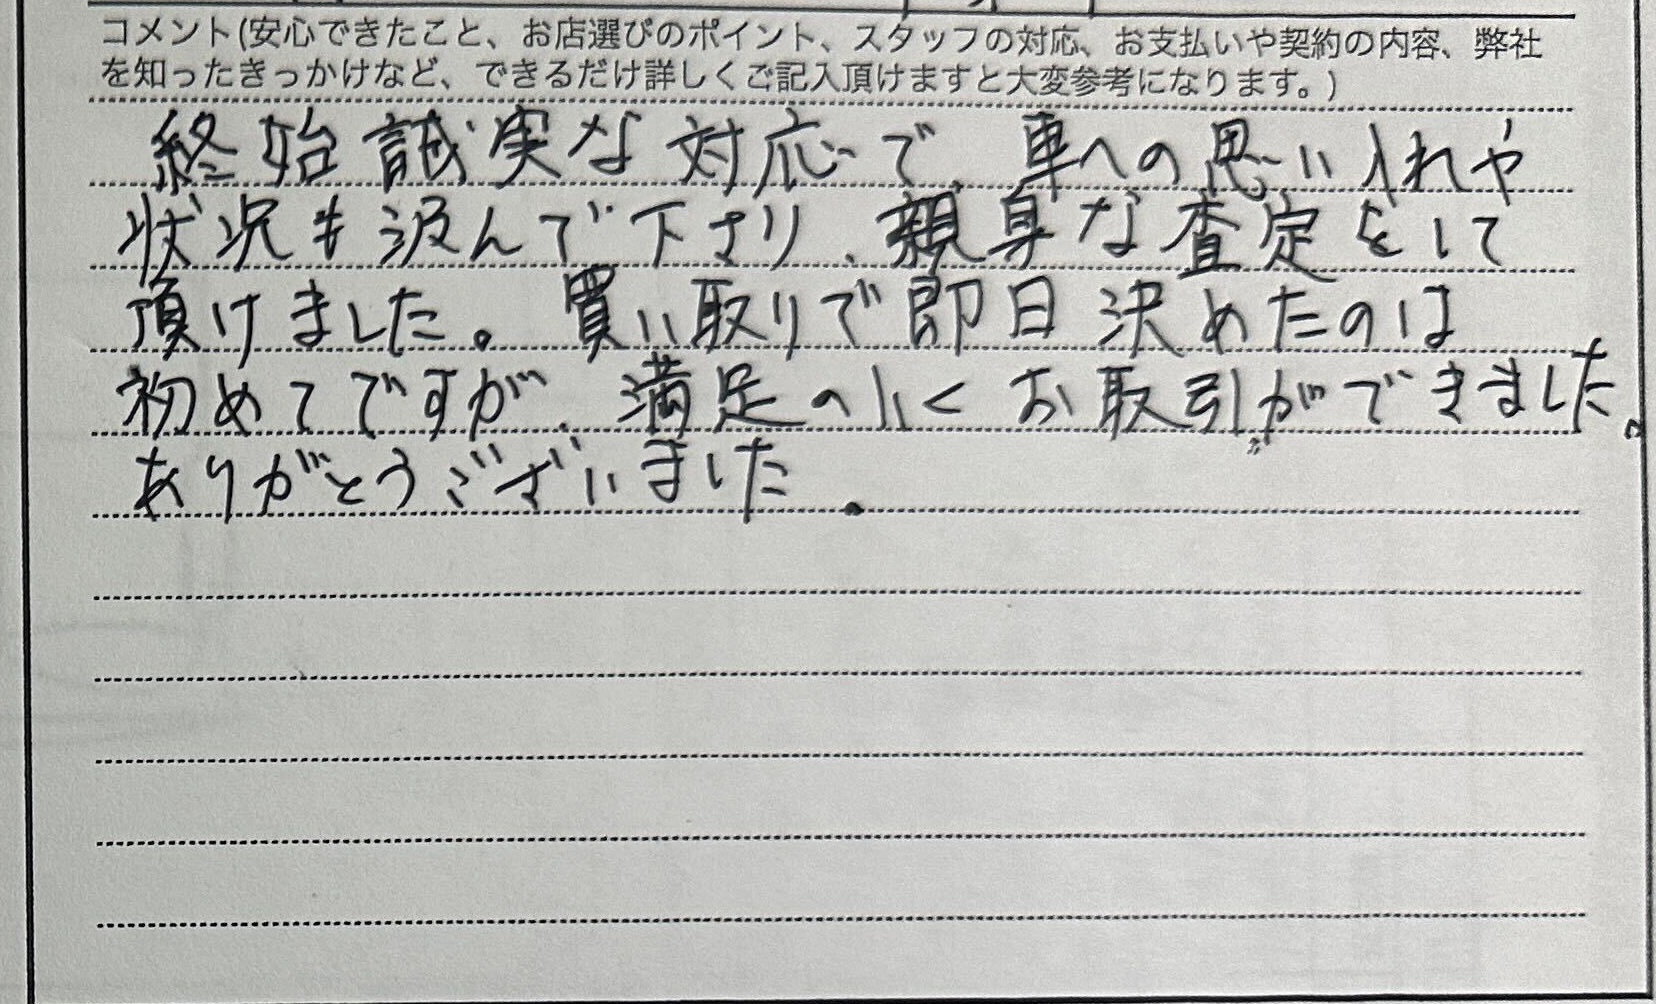 コメント(安心できたこと、お店選びのポイント、スタッフの対応、お支払いや契約の内容、弊社
を知ったきっかけなど、できるだけ詳しくご記入頂けますと大変参考になります。)
終始誠実な対応で、車への思い入れや
状況も汲んで下さり、親身な査定をして
頂けました。買い取りで即日決めたのは
初めてですが、満足のいくお取引ができました。
ありがとうございました。